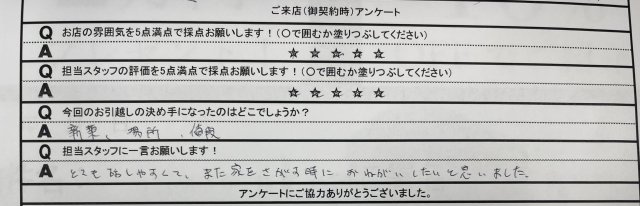 ご来店(御契約時)アンケート
Q お店の雰囲気を5点満点で採点お願いします！(〇で囲むか塗りつぶしてください)
A ☆ ☆ ☆ ☆ ☆
Q 担当スタッフの評価を5点満点で採点お願いします！(〇で囲むか塗りつぶしてください)
A ☆ ☆ ☆ ☆ ☆
Q 今回のお引越しの決め手になったのはどこでしょうか？
A 新築、場所、値段
Q 担当スタッフに一言お願いします！
A とても話しやすくて、また家をさがす時に おねがいしたいと思いました。
アンケートにご協力ありがとうございました。